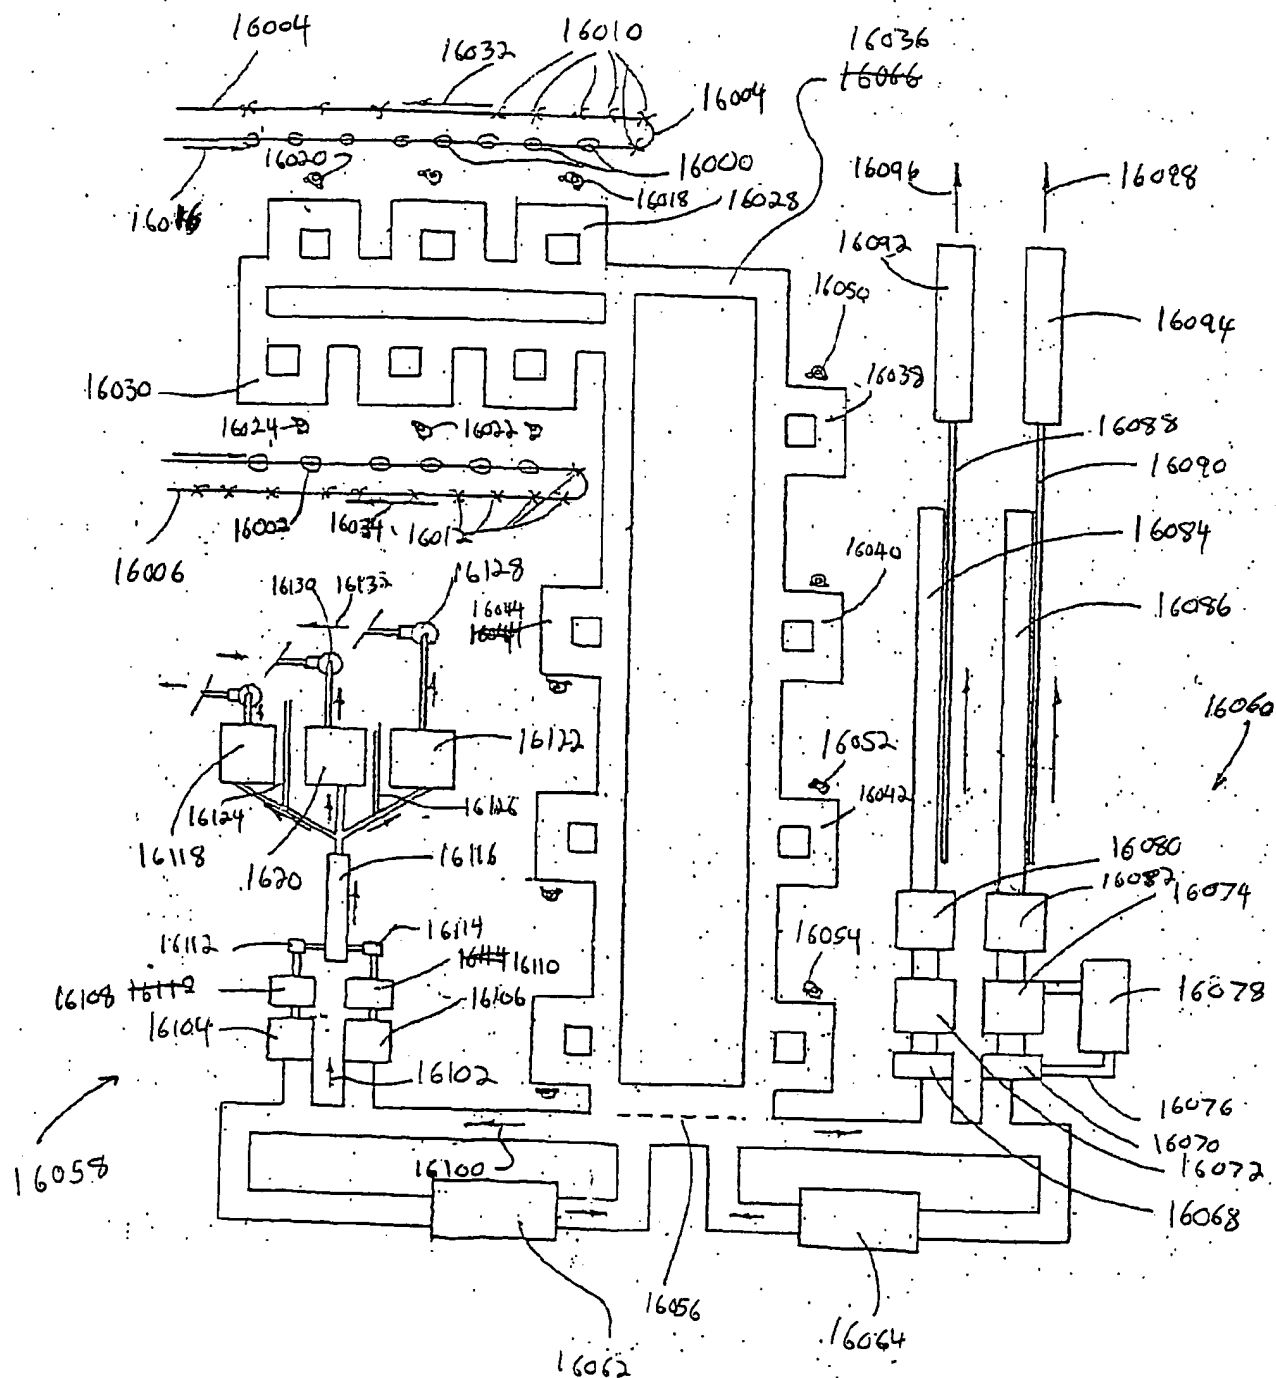 16004
16032
16010
16036
16066
16004
16020
16000
16016
16018
16028
16096
16098
16092
16050
16094
16030
16038
16024
16022
16088
16090
16002
16034
16012
16006
16040
16084
16130
16132
16128
16044
16086
16060
16122
16052
16124
16126
16042
16118
1620
16116
16080
16082
16074
16112
16114
16054
16110
16108
16106
16078
16104
16102
16076
16070
16100
16072
16058
16068
16056
16064
16062